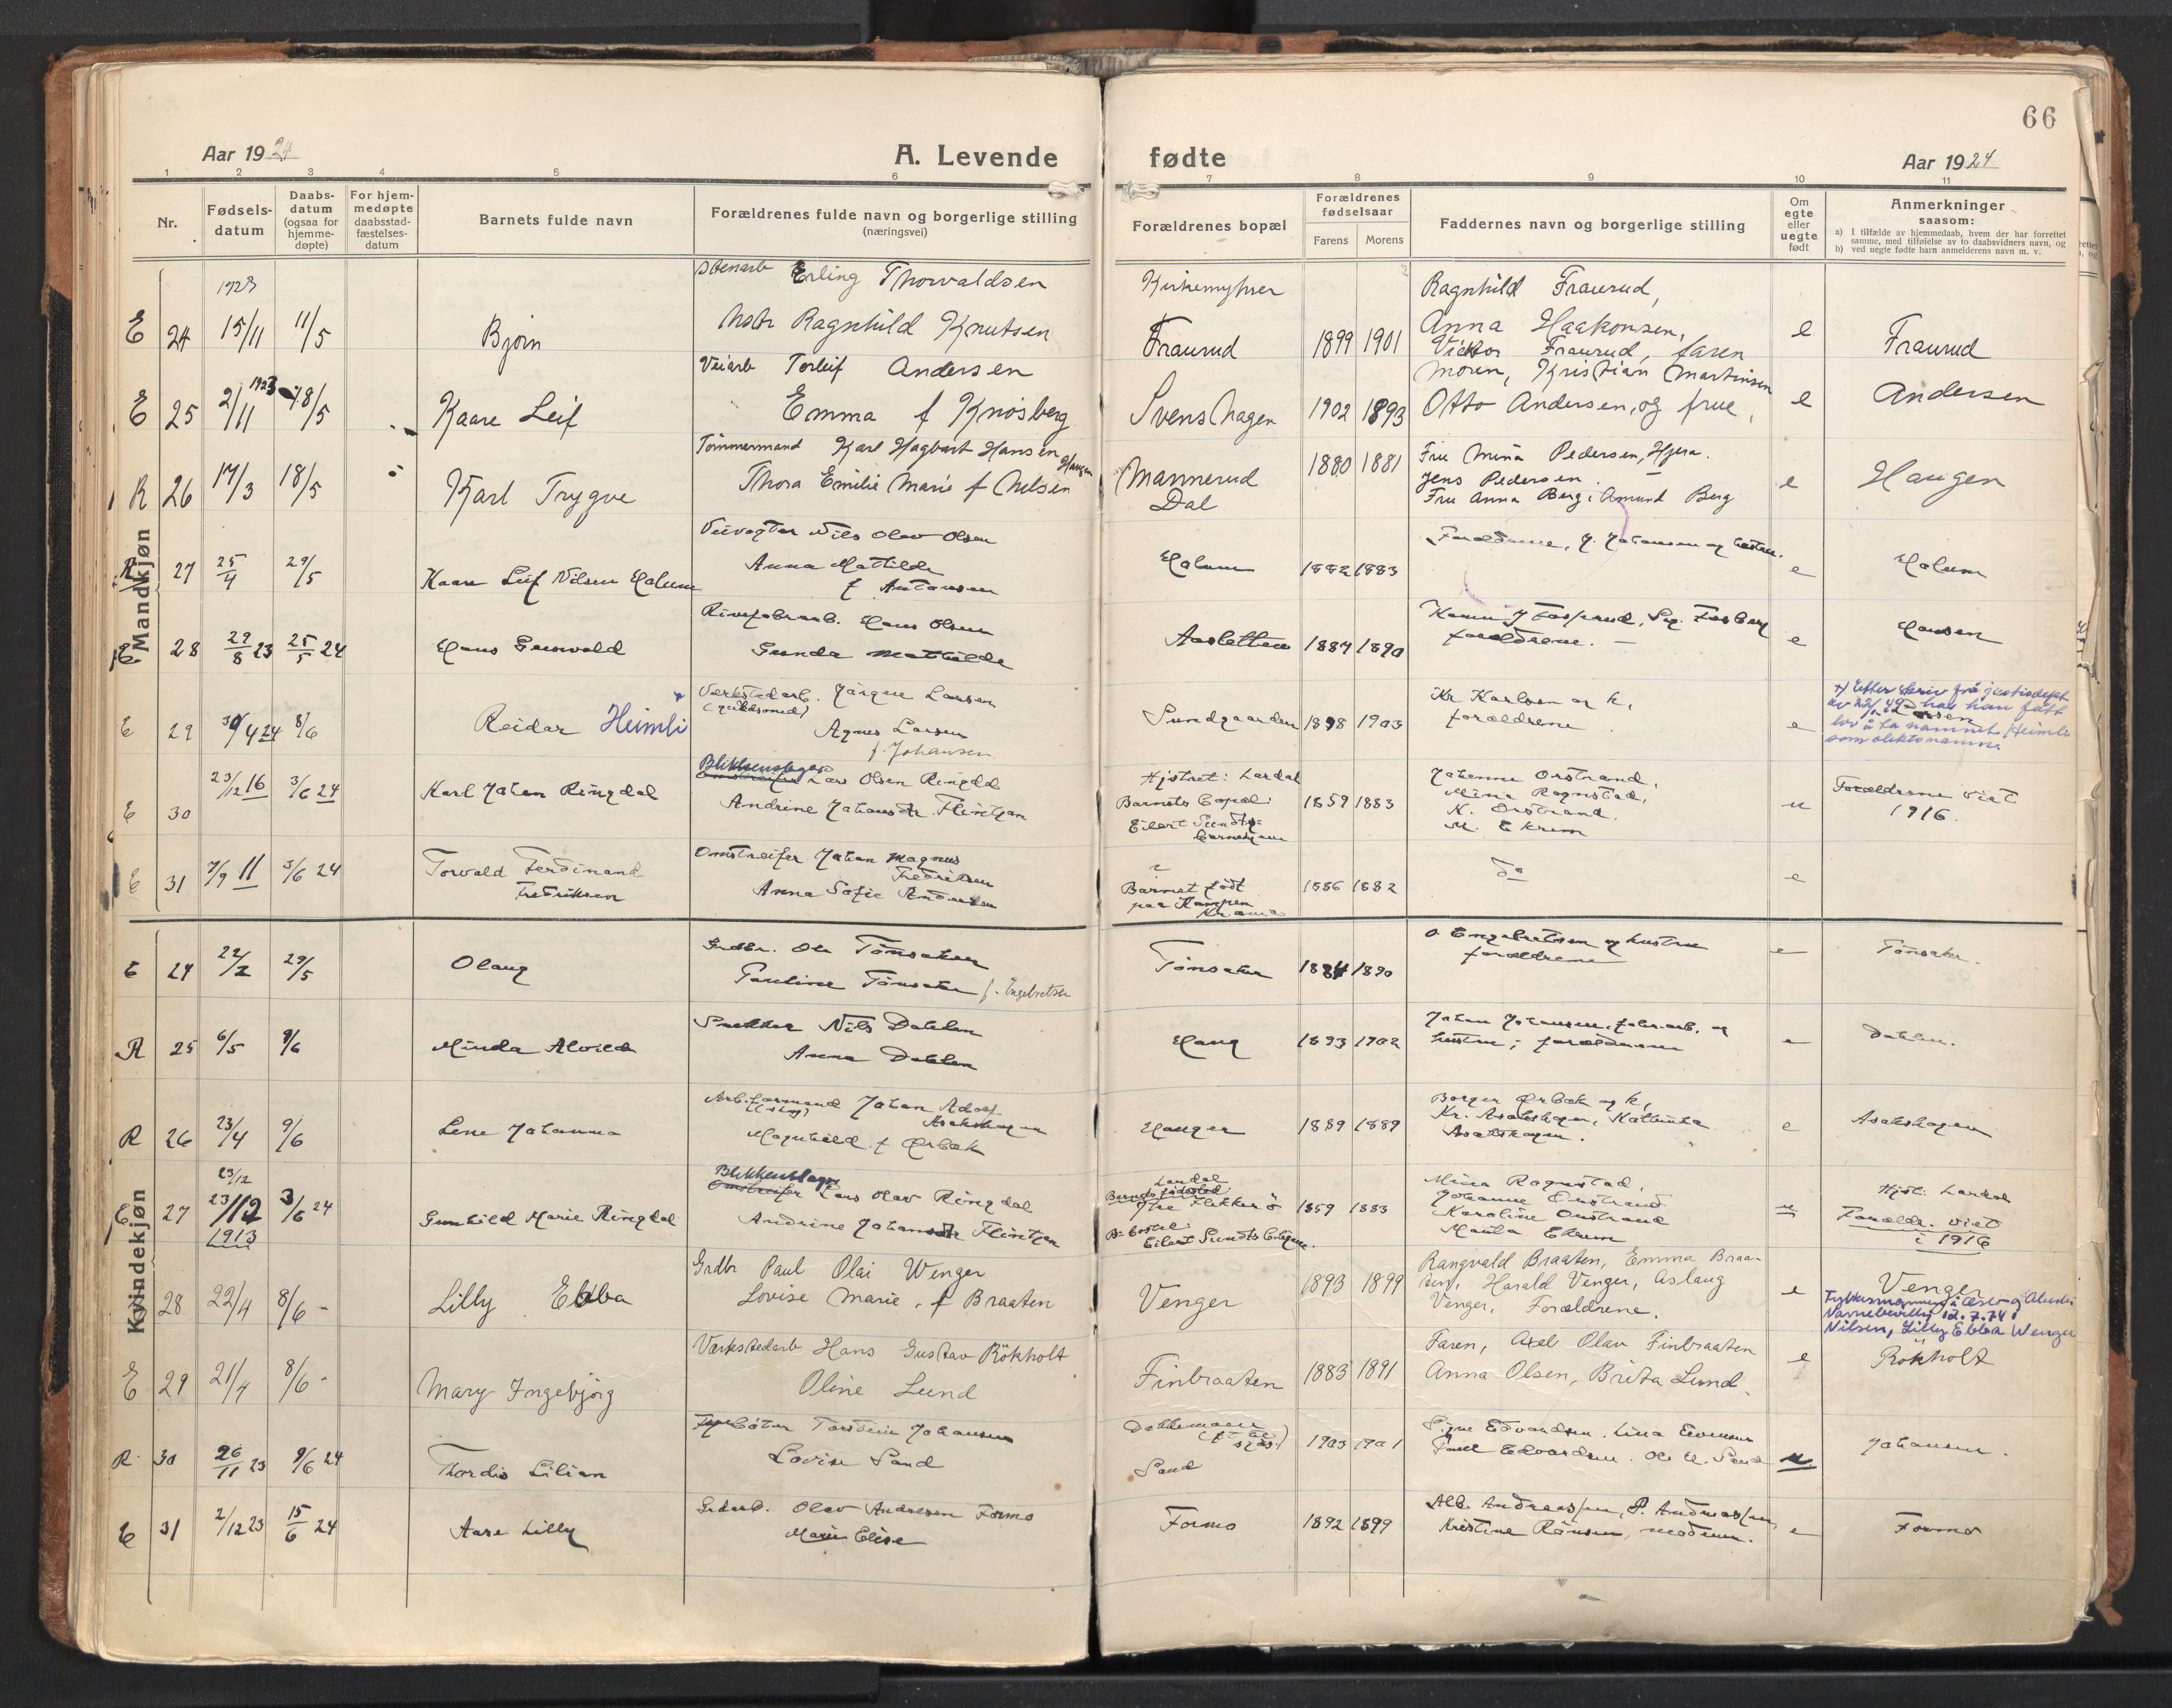 66
Aar 1924
A. Levende fødte
Aar 1924
1 2 3 4 5 6 7 8 9 10 11
Nr.
Fødsels-
datum
Daabs-
datum
(ogsaa for
hjemme-
døpte)
For hjem-
medøpte
daabsstad-
fæstelses-
datum
Barnets fulde navn
Forældrenes fulde navn og borgerlige stilling
(næringsvei)
Forældrenes bopæl
Forældrenes
fødselsaar
Farens Morens
Faddernes navn og borgerlige stilling
Om
egte
eller
uegte
født
Anmerkninger
saasom:
a) I tilfælde av hjemmedaab, hvem der har forrettet
samme, med tilføielse av to daabsvidners navn, og
b) ved uegte fødte barn anmelderens navn m. v.
Mandkjøn
1923
E 24 15/11 11/5
Bjørn
Stenarb Erling Thorvaldsen
Ragnhild Knutsen
Kirkemyhrer
Fraurud
1899 1901
Ragnhild Fraurud,
Anna Haakonsen,
Victor Fraurud, faren
e
Fraurud
E 25 2/11 1923 18/5
Kaare Leif
Veiarb Torleif Andersen
Emma f Knøsberg
Svenshagen
1902 1893
Moren, Kristian Martinsen
Otto Andersen, og frue,
e
Andersen
R 26 17/3 18/5
Karl Trygve
Tømmermand Karl Hagbart Hansen Haugen
Thora Emilie Marie f Nilsen
Mannerud
Dal
1880 1881
Fru Mina Pedersen, Hjera.
Jens Pedersen.
Fru Anna Berg i Amund Berg
e
Haugen
R 27 25/4 29/5
Kaare Leif Nilsen Holum
Veivogter Nils Olav Olsen
Anna Mathilde
f Antonsen
Holum
1882 1883
Forældrene, J. Johansen og hustru.
e
Holum
E 28 29/8 23 25/5 24
Hans Gunvald
Hans Olsen
Gunda Mathilde
Aasletten
1887 1890
forældrene. —
e
Hansen
E 29 30/4 24 8/6
Reidar Heimli
Værkstedarb. Jørgen Larsen
Agnes Larsen
f. Johansen
Sundgaarden
1898 1903
Kr Karlsen og h,
forældrene
e
x) Etter skriv frå justisdept
av 22/12 49 har han fått
lov å ta namnet Heimli
som slektsnamn.
E 30 23/12 16 3/6 24
Karl Johan Ringdal
Blikkenslager
Omstreifer Lars Olsen Ringdal
Andrine Johansdtr. Flintzan
Hjstret: Lardal
Barnets bopæl:
Eilert Sundts
barnehjem
1859 1883
Johanne Orstrand,
Mina Rognstad,
K. Orstrand.
M. Ekrem
u
Forældrene viet
1916.
E 31 7/9 11 3/6 24
Torvald Ferdinand
Fredriksen
Omstreifer Johan Magnus
Fredriksen
Anna Sofie Andersen
?
Barnet født
paa Kampen
Kr.ania
1886 1882
do
e
Kvindekjøn
E 24 22/2 29/5
Olaug
Grdbr. Ole Tönsaker
Pauline Tönsaker f. Engebretsen
Tönsaker
1884 1890
O. Engebretsen og hustru
forældrene
e
Tönsaker.
R 25 6/5 9/6
Minda Alvilde
Snekker Nils Dahlen
Anna Dahlen
Haug
1893 1902
Johan Johansen, fabr.arb. og
hustru; forældrene
e
Dahlen.
R 26 23/4 9/6
Lene Johanna
Arb.formand Johan Adolf
Asakshagen
Magnhild f Ørbæk
Hanger
1889 1889
Borger Ørbæk og h,
Kr. Asakshagen, Kathinka
Asakshagen.
e
Asakshagen
23/12
E 27 23/12 3/6 24
1913
Gunhild Marie Ringdal
Blikkenslager
Omstreifer Lars Olav Ringdal
Andrine Johansdtr Flintzan
Lardal
Barnets fødested:
Ytre Flekkerö
B's bosted:
Eilert Sundts
1859 1883
Mina Rognstad,
Johanne Orstrand
Karoline Orstrand
Marta Ekrem
u
Hjst: Lardal
Forældr. viet
i 1916
E 28 22/4 8/6 -
Lilly Ebba
Grdbr Paul Olai Wenger
Lovise Marie, f Braaten
Venger
1893 1899
Rangvald Braaten, Emma Braa-
ten, Harald Venger, Aslaug
Venger, Forældrene.
e
Venger
Fylkesmannen i Oslo og Akershus
Navnebevilling 12.7.74:
Nilsen, Lilly Ebba Wenger
E 29 21/4 8/6 -
Mary Ingebjørg
Værkstedarb Hans Gustav Rökholt
Oline Lund
Finbraaten
1883 1891
Faren, Axel Olav Finbraaten
Anna Olsen, Brita Lund.
e
Rökholt
R. 30 26/11 23 9/6 24
Thordis Lilian
Torstein Johansen
Lovise Sand
Sand
1903 1901
Signe Edvardsen. Lina Evensen
Paul Edvardsen. Ole H. Sand
u.
Johansen.
E 31 2/12 23 15/6 24
Aase Lilly
Grdarb. Olav Andresen Formo
Marie Elise
Formo
1892 1899
Alb. Andreassen, P. Andreassen,
Kristine Rönsen, moderen.
e
Formo